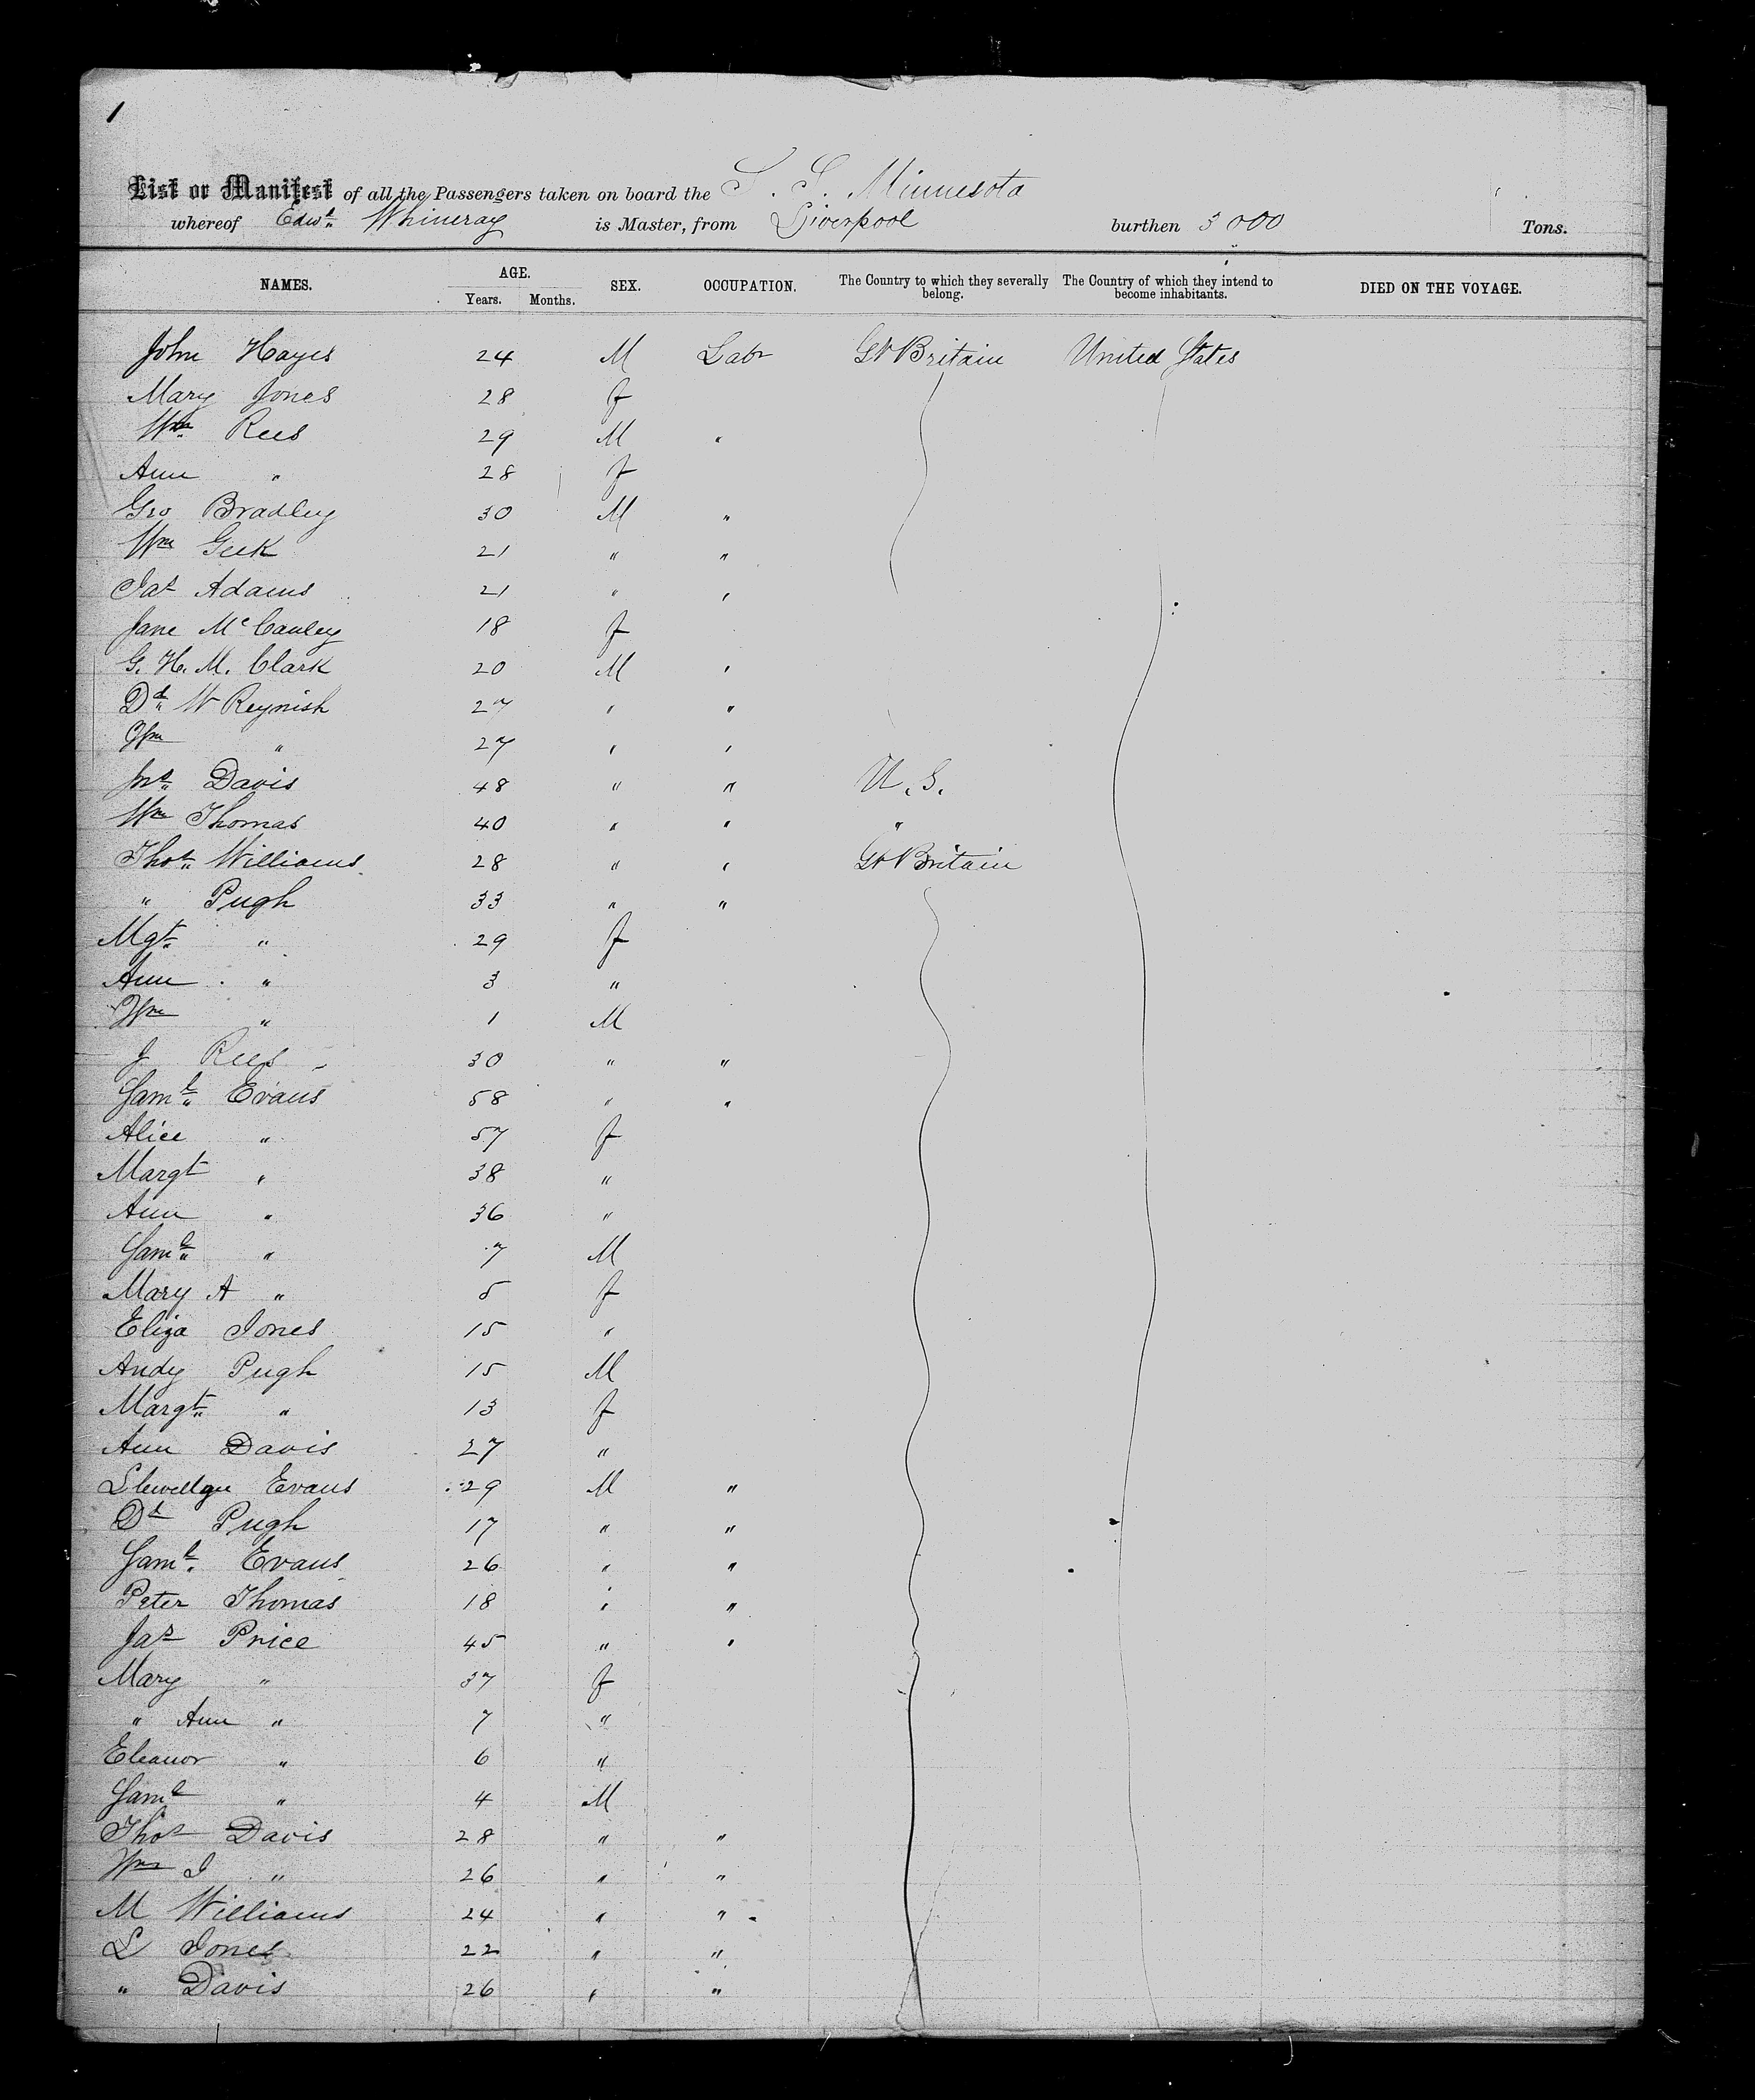 1
List or Manifest of all the Passengers taken on board the S. S. Minnesota
whereof Edwd Whineray is Master, from Liverpool burthen 3000 Tons.
NAMES. AGE. Years. Months. SEX. OCCUPATION. The Country to which they severally belong. The Country of which they intend to become inhabitants. DIED ON THE VOYAGE.
John Hayes 24 M Labr Gt Britain United States
Mary Jones 28 f
Wm Rees 29 M "
Ann " 28 f
Geo Bradley 30 M "
Wm Geek 21 " "
Jas Adams 21 " "
Jane McCauley 18 f
G. H. M. Clark 20 M "
Dd W Reynish 27 " "
Wm " 27 " "
Jno Davis 48 " " U.S.
Wm Thomas 40 " " "
Thos Williams 28 " " Gt Britain
" Pugh 33 " "
Mgt " 29 f
Ann " 3 "
Wm " 1 M
J Rees 30 " "
Saml Evans 58 " "
Alice " 57 f
Margt " 38 "
Ann " 36 "
Saml " 7 M
Mary A " 5 f
Eliza Jones 15 "
Andy Pugh 15 M
Margt " 13 f
Ann Davis 27 "
Llewellyn Evans 29 M "
Dd Pugh 17 " "
Saml Evans 26 " "
Peter Thomas 18 " "
Jas Price 45 " "
Mary " 37 f
" Ann " 7 "
Eleanor " 6 "
Saml " 4 M
Thos Davis 28 " "
Wm J " 26 " "
M Williams 24 " "
L Jones 22 " "
" Davis 26 " "